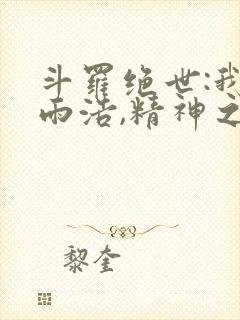 斗羅绝世:我
而活,精神之
黎奎